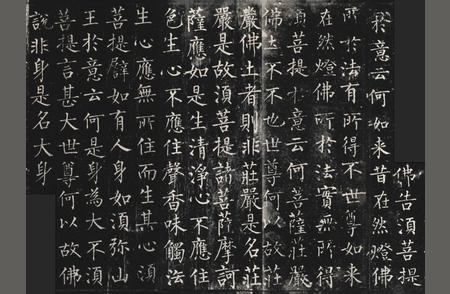 佛告須菩提
於意云何如來昔在然燈佛
所於法有所得不世尊如來
在然燈佛所於法實無所得
須菩提於意云何菩薩莊嚴
佛土不不也世尊何以故莊
嚴佛土者則非莊嚴是名莊
嚴是故須菩提諸菩薩摩訶
薩應如是生清淨心不應住
色生心不應住聲香味觸法
生心應無所住而生其心須
菩提譬如有人身如須弥山
王於意云何是身為大不須
菩提言甚大世尊何以故佛
說非身是名大身